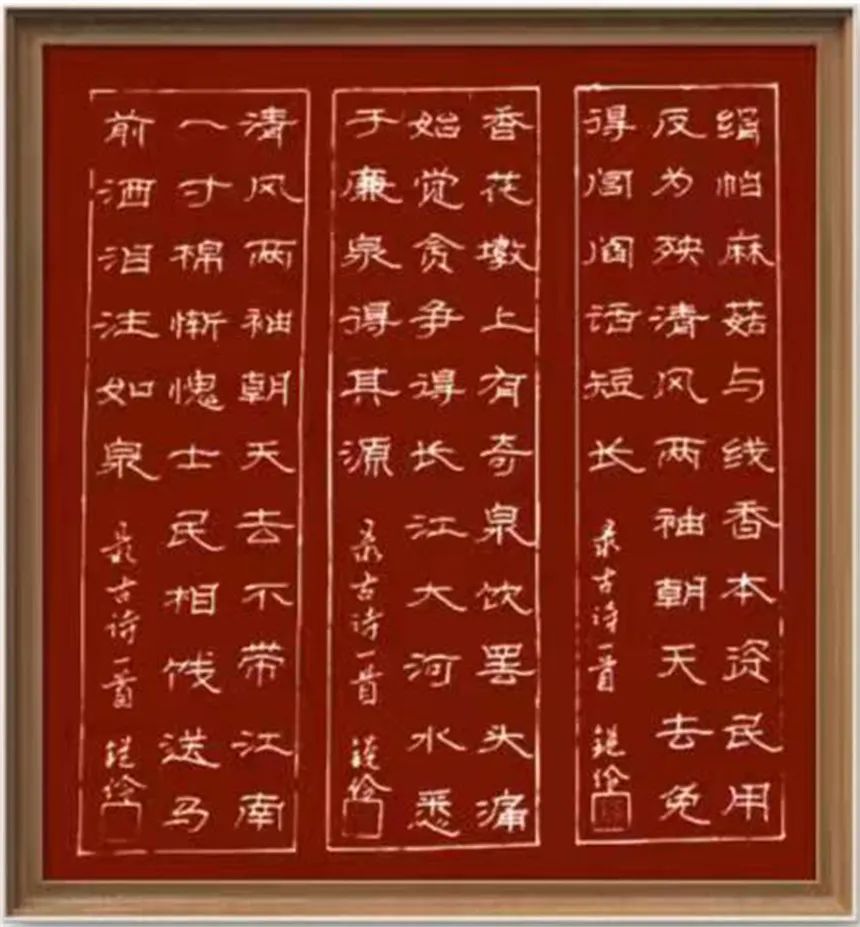 绢帕麻菇与线香本资民用
反为殃清风两袖朝天去免
得闾阎话短长
录古诗一首
香花墩上有奇泉饮罢头痛
始觉贪争得长江大河水悉
于廉泉得其源
录古诗一首
清风两袖朝天去不带江南
一寸棉惭愧士民相饯送马
前洒泪注如泉
录古诗一首